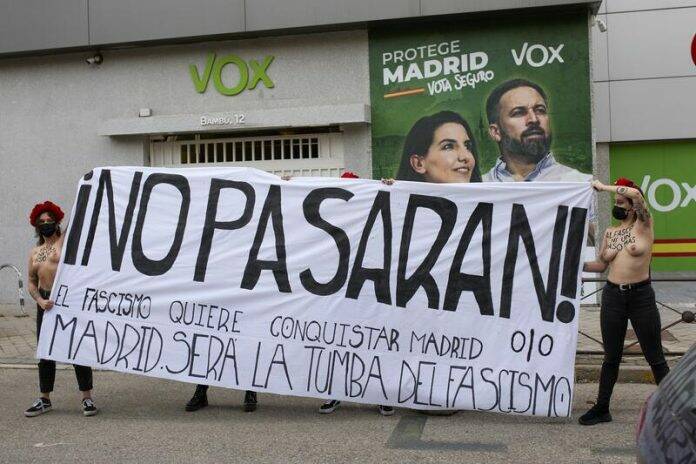 VOX
BAMBÚ, 12
PROTEGE
MADRID
VOTA SEGURO
VOX
VOX
¡NO PASARAN!
EL FASCISMO QUIERE CONQUISTAR MADRID
MADRID. SERÁ LA TUMBA DEL FASCISMO
AL FASCISMO
NI UN
PASO
MÁS